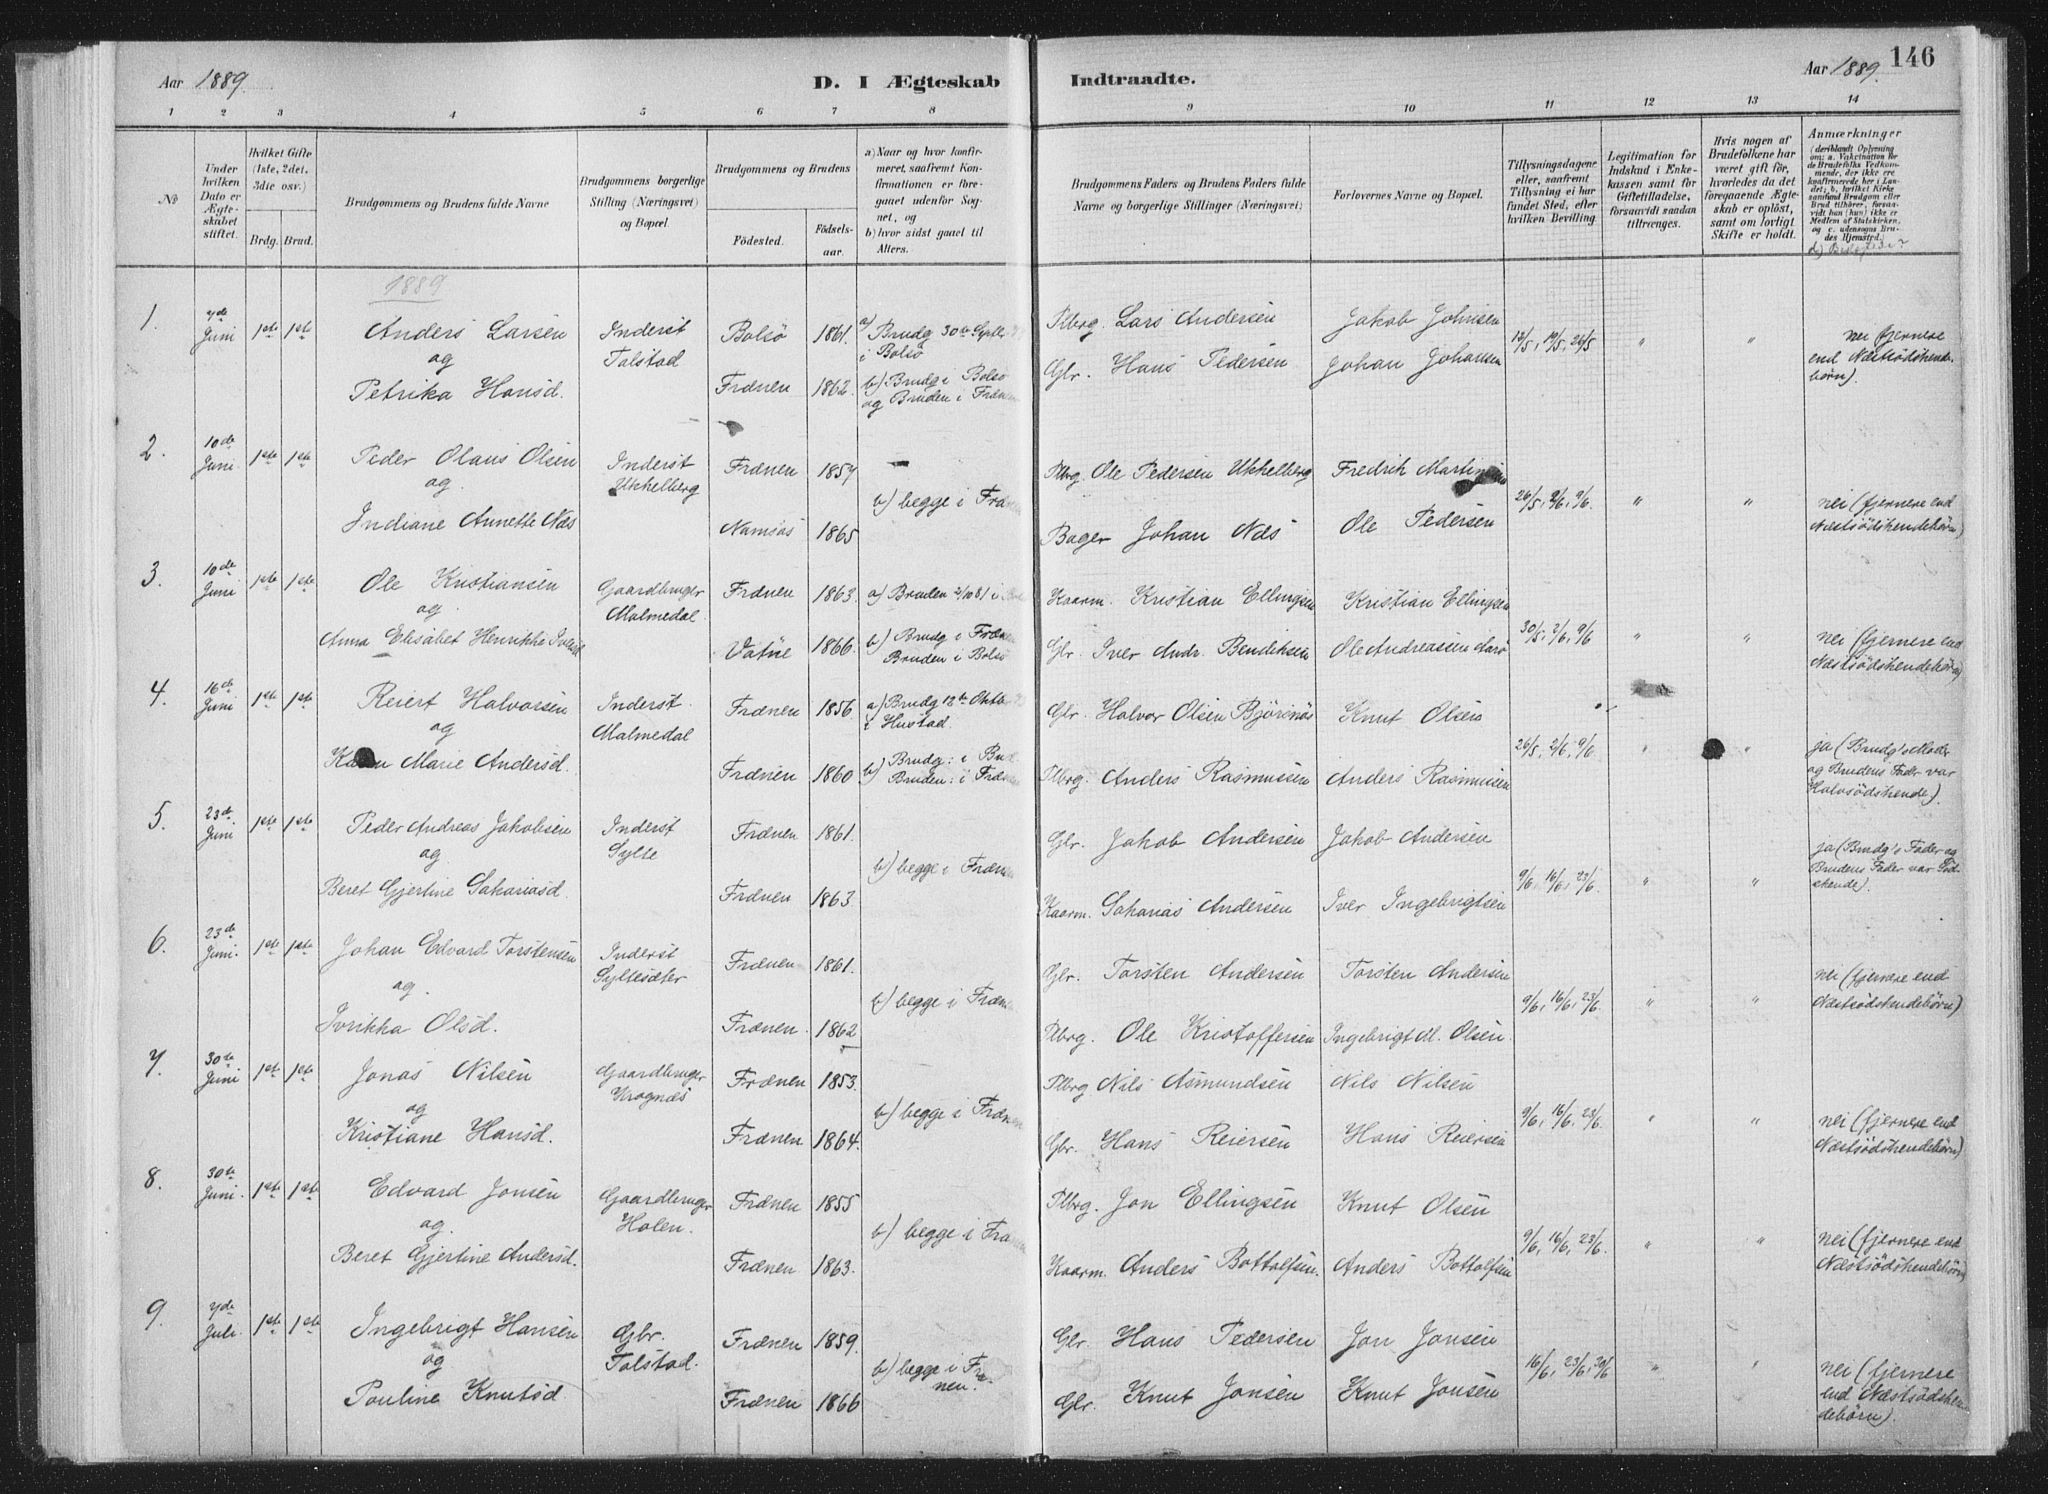 Aar 1889.
D. I Ægteskab Indtraadte.
Aar 1889.
146
1 2 3 4 5 6 7 8 9 10 11 12 13 14
No
Under hvilken Dato er Ægteskabet stiftet.
Hvilket Gifte (1ste, 2det, 3die osv.)
Brdg. Brud.
Brudgommens og Brudens fulde Navne
Brudgommens borgerlige Stilling (Næringsvei) og Bopæl.
Brudgommens og Brudens
Födested.
Födselsaar.
a) Naar og hvor konfirmeret, saafremt Konfirmationen er foregaaet udenfor Sognet, og
b) hvor sidst gaaet til Alters.
Brudgommens Faders og Brudens Faders fulde Navne og borgerlige Stillinger (Næringsvei)
Forlovernes Navne og Bopæl.
Tillysningsdagene eller, saafremt Tillysning ei har fundet Sted, efter hvilken Bevilling
Legitimation for Indskud i Enkekassen samt for Giftetilladelse, forsaavidt saadan tiltrænges.
Hvis nogen af Brudefolkene har været gift för, hvorledes da det foregaaende Ægteskab er oplöst, samt om lovligt Skifte er holdt.
Anmærkninger (deriblandt Oplysning om: a. Vakcination for Brudefolks Vedkommende, der ikke ere konfirmerede her i Landet; b. hvilket Kirkesamfund Brudgom eller Brud tilhörer, forsaavidt han (hun) ikke er Medlem af Statskirken, og c. udensogns Brudes Hjemsted.)
1889
1. 7de Juni 1ste 1ste
Anders Larsen
og
Petrika Hansd.
Inderst
Talstad
Bolsö 1861.
Frænen 1862.
a) Brudg 30te
i Bolsö
b) Brudg i Bolsö
og Bruden i Frænen
Plbrg. Lars Andersen
Glr. Hans Pedersen
Jakob Johnsen
Johan Johansen
12/5, 19/5, 26/5 " "
nei (fjernere
end Næstsödskende-
börn).
2. 10de Juni 1ste 1ste
Peder Olaus Olsen
og
Indiane Annette Næs
Inderst
Ukkelberg
Frænen 1857
Namsos 1865
—
b) begge i Frænen
Plbrg. Ole Pedersen Ukkelberg
Bager Johan Næs
Fredrik
Ole Pedersen
26/5, 2/6, 9/6. " "
nei (fjernere end
Næstsödskendebörn)
3. 10de Juni 1ste 1ste
Ole Kristiansen
og
Anna Elisabet Henrikke Iversd
Gaardbruger
Malmedal
Frænen 1863.
Vatne 1866.
a) Bruden 2/10 81 i
b) Brudg i Frænen
Bruden i Bolsö
Kaarm. Kristian Ellingsen
Glr. Iver Andr. Bendiksen
Kristian Ellingsen
Ole Andreasen Aarö
30/5, 2/6, 9/6 " "
nei (fjernere end
Næstsödskendebörn)
4. 16de Juni 1ste 1ste
Reiert Halvorsen
og
Karen Marie Andersd.
Inderst.
Malmedal
Frænen 1856
Frænen 1860
a) Brudg 12te Oktbr
i Hustad
b) Brudg: i Bud.
Bruden: i Frænen
Glr. Halvor Olsen Björsnös
Plbrg. Anders Rasmussen
Knut Olsen
Anders Rasmussen
26/5, 2/6, 9/6 " "
ja (Brudg's Moder
og Brudens Fader var
Halvsödskende).
5. 23de Juni 1ste 1ste
Peder Andreas Jakobsen
og
Beret Gjertine Sakariasd.
Inderst
Sylte
Frænen 1861.
Frænen 1863.
b) begge i Frænen
Glr. Jakob Andersen
Kaarm. Sakarias Andersen
Jakob Andersen
Iver Ingebrigtsen
9/6, 16/6, 23/6. " "
ja (Brudg's Fader og
Brudens Fader var Söd-
skende).
6. 23de Juni. 1ste 1ste
Johan Edvard Torstensen
og.
Ivrikka Olsd.
Inderst
Syltesæter
Frænen 1861.
Frænen. 1862
b) begge i Frænen
Glr. Torsten Andersen
Plbrg. Ole Kristoffersen
Torsten Andersen
Ingebrigt M. Olsen.
9/6, 16/6, 23/6. " "
nei (fjernere end
Næstsödskendebörn)
7. 30te Juni 1ste 1ste
Jonas Nilsen
og
Kristiane Hansd.
Gaardbruger
Krognæs
Frænen 1853.
Frænen 1864.
b) begge i Frænen
Plbrg Nils Asmundsen
Gbr. Hans Reiersen
Nils Nilsen
Hans Reiersen
9/6, 16/6, 23/6. " "
nei (fjernere end
Næstsödskendebörn)
8. 30te Juni. 1ste 1ste
Edvard Jonsen
og.
Beret Gjertine Andersd.
Gaardbruger
Holen.
Frænen 1855
Frænen 1863.
b) begge i Frænen
Plbrg. Jon Ellingsen
Kaarm. Anders Bottolfsen.
Knut Olsen
Anders Bottolfsen
9/6, 16/6, 23/6. " "
nei (fjernere end
Næstsödskendebörn)
9. 7de Juli. 1ste 1ste
Ingebrigt Hansen
og
Pauline Knutsd
Gbr.
Talstad.
Frænen 1859.
Frænen 1866
b) begge i Fræ-
nen.
Glr. Hans Pedersen
Glr. Knut Jonsen
Jon Jonsen
Knut Jonsen
16/6, 23/6, 30/6 " "
nei (fjernere
end Næstsödsken-
debörn).